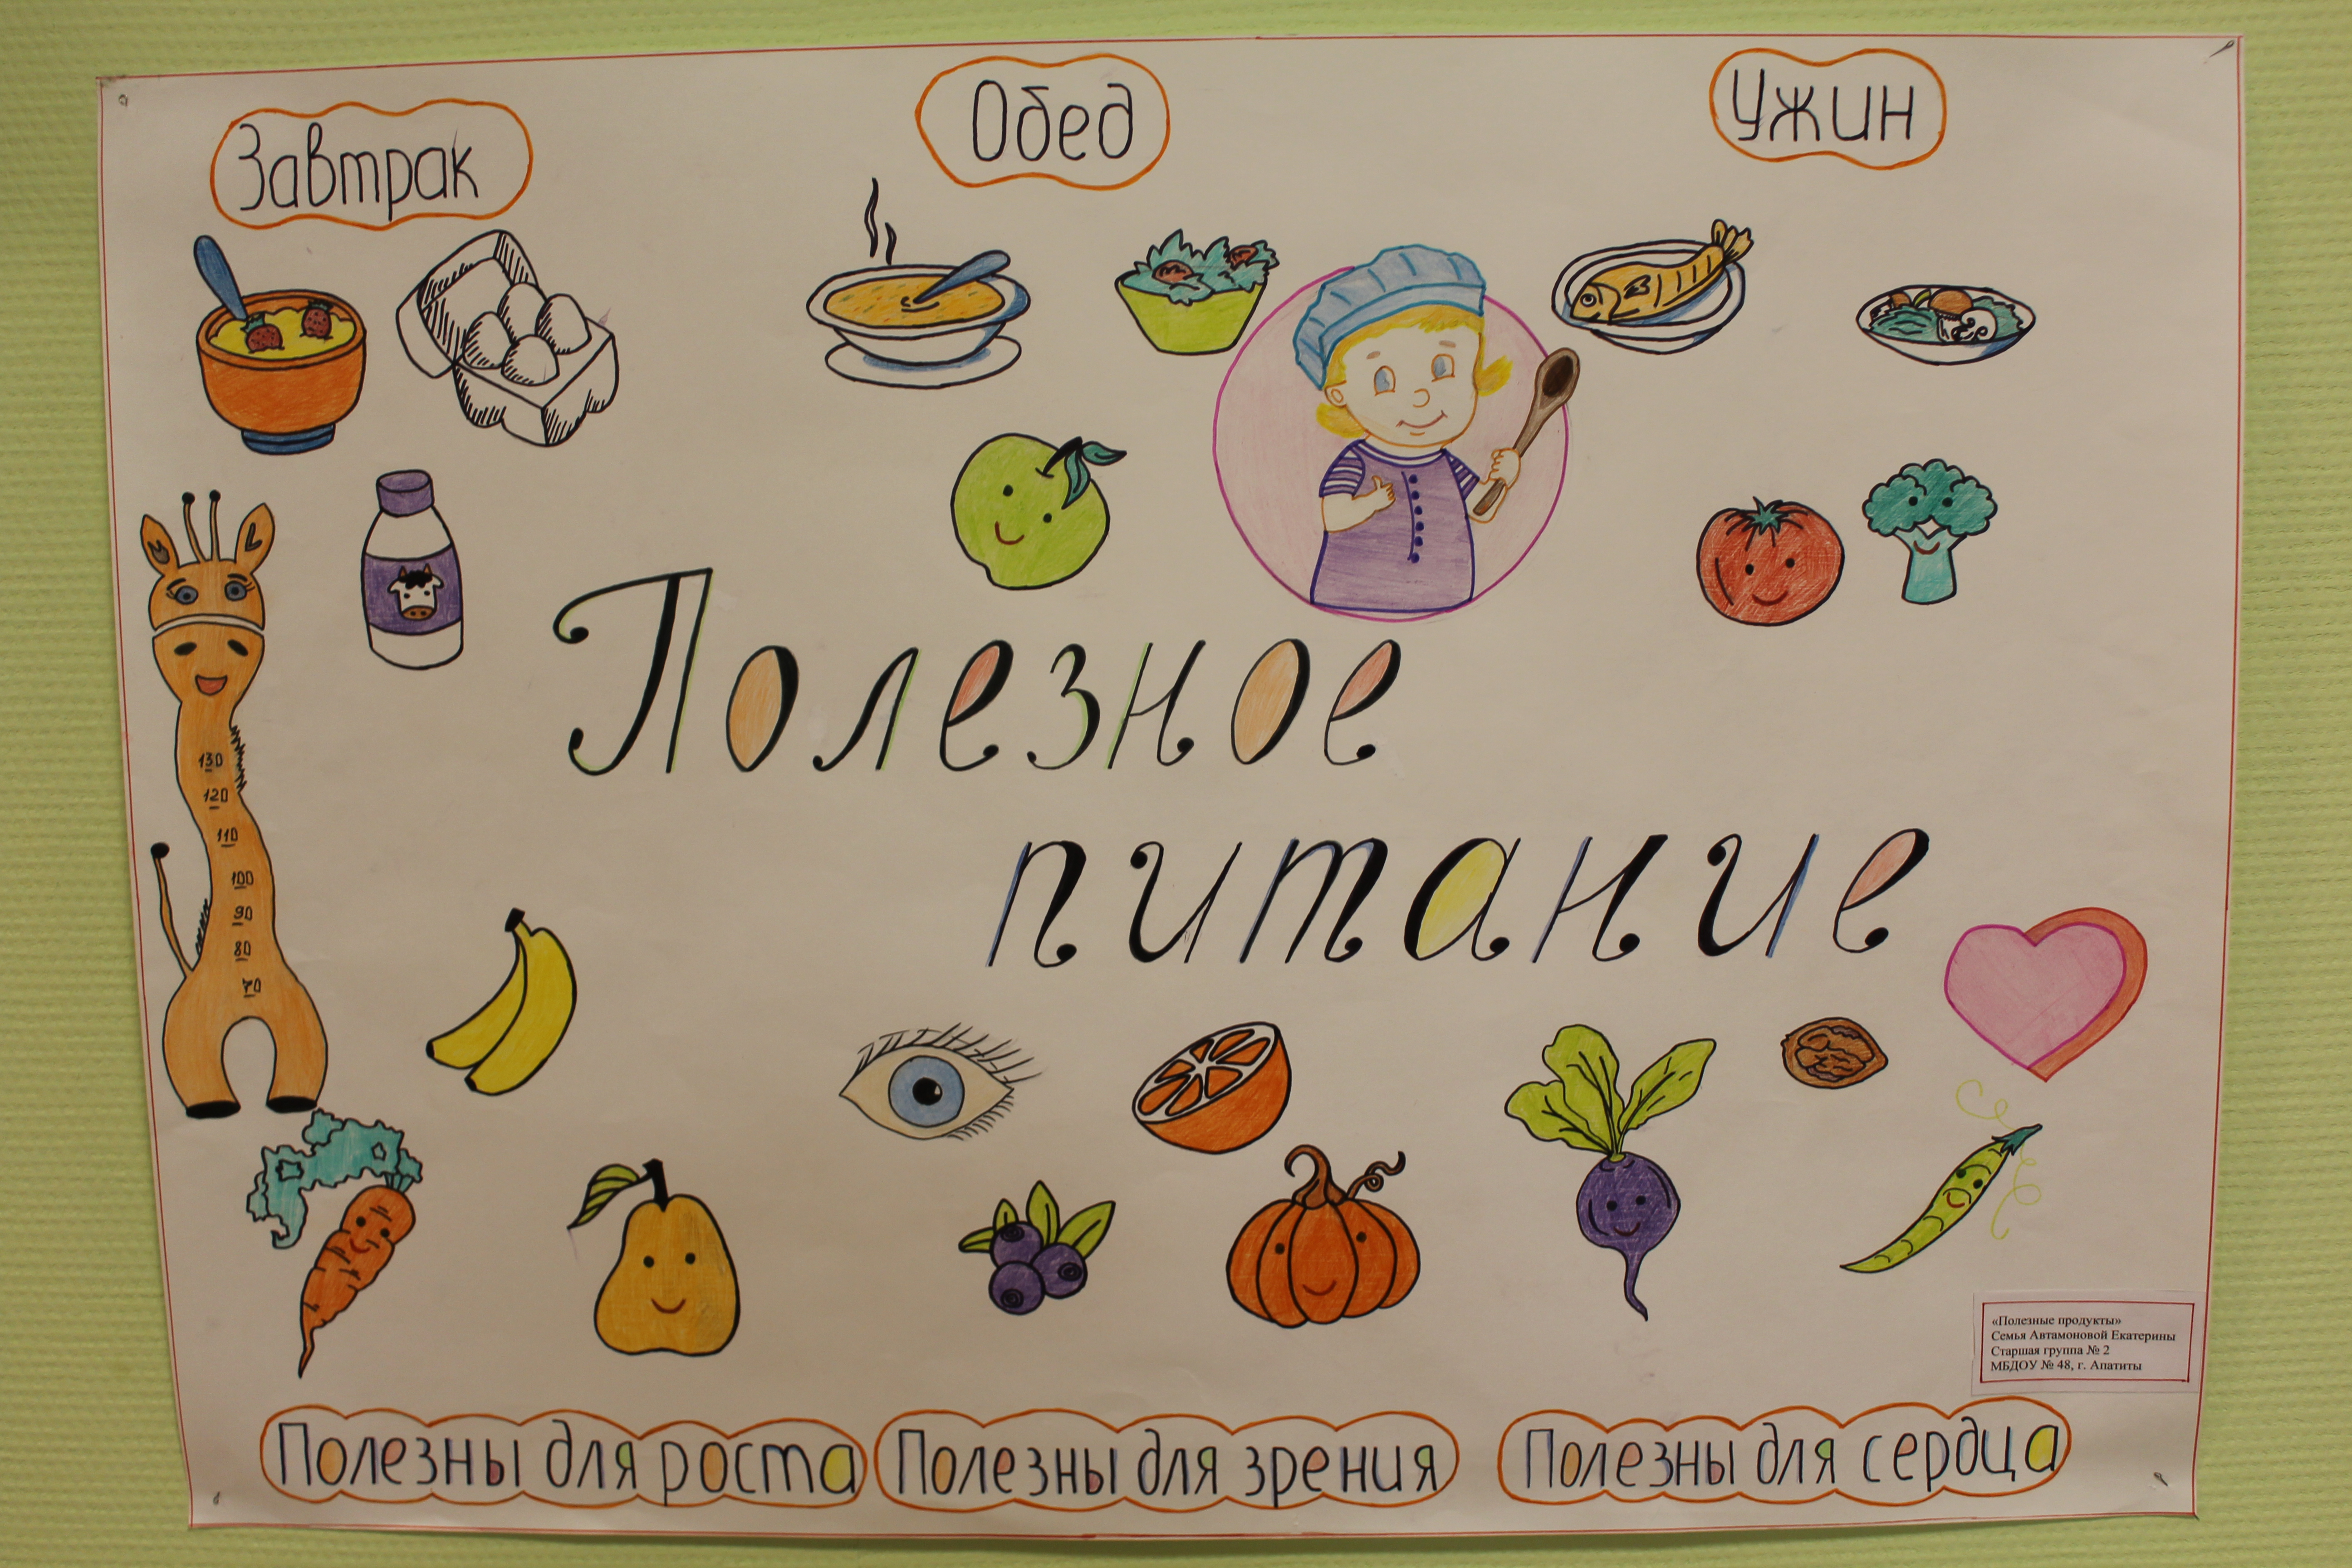 Завтрак
Обед
Ужин
Полезное
питание
130
120
110
100
90
80
70
«Полезные продукты»
Семья Автамоновой Екатерины
Старшая группа № 2
МБДОУ № 48, г. Апатиты
Полезны для роста
Полезны для зрения
Полезны для сердца